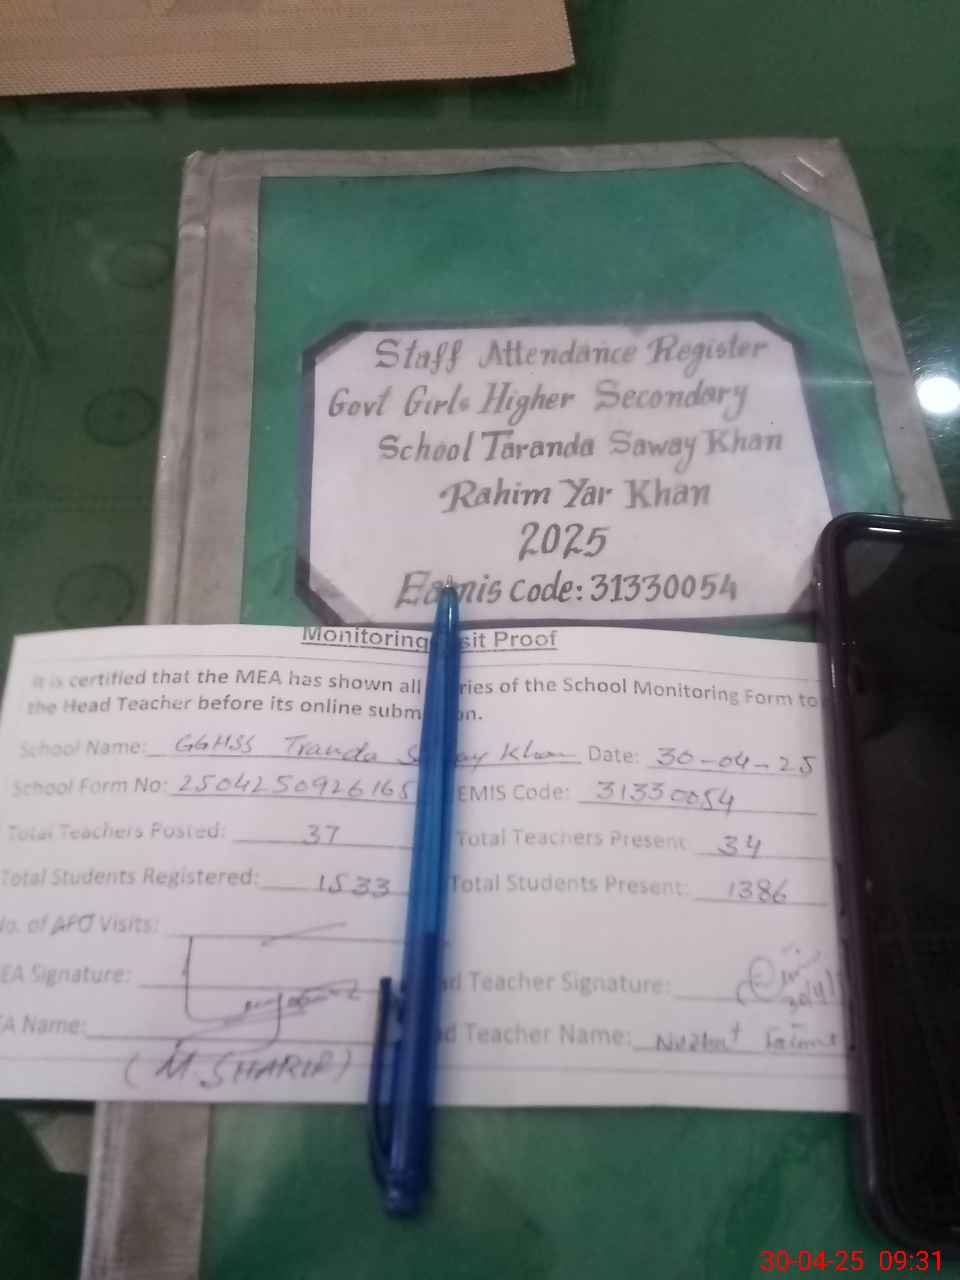 Staff Attendance Register
Govt Girls Higher Secondary
School Taranda Saway Khan
Rahim Yar Khan
2025
Eamis Code: 31330054
Monitoring sit Proof
It is certified that the MEA has shown all ries of the School Monitoring Form to
the Head Teacher before its online subm on.
School Name: GGHSS Tranda S ay Khan Date: 30-04-25
School Form No: 2504250926165 EMIS Code: 31330054
Total Teachers Posted: 37 Total Teachers Present: 34
Total Students Registered: 1533 Total Students Present: 1386
No. of AEO Visits:
EA Signature: d Teacher Signature:
A Name: d Teacher Name:
(M. SHARIF)
30-04-25 09:31